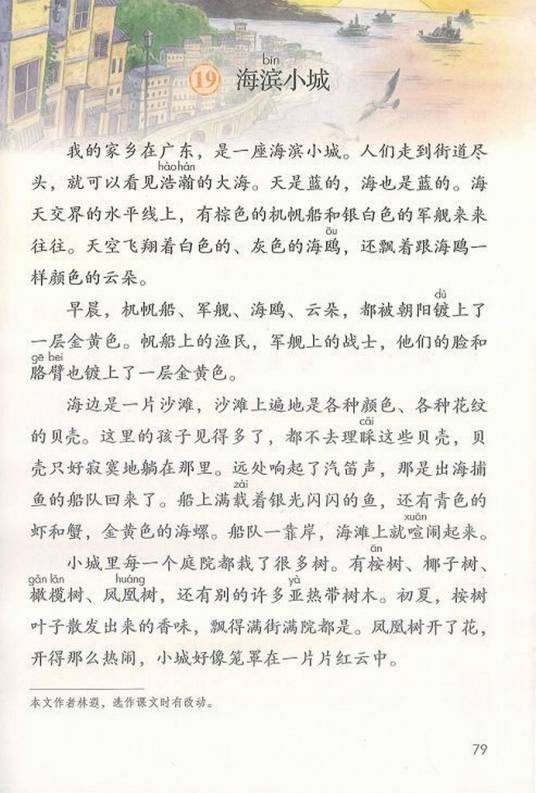 bīn
19 海滨小城
我的家乡在广东，是一座海滨小城。人们走到街道尽
hào hàn
头，就可以看见浩瀚的大海。天是蓝的，海也是蓝的。海
天交界的水平线上，有棕色的机帆船和银白色的军舰来来
ōu
往往。天空飞翔着白色的、灰色的海鸥，还飘着跟海鸥一
样颜色的云朵。
dù
早晨，机帆船、军舰、海鸥、云朵，都被朝阳镀上了
一层金黄色。帆船上的渔民，军舰上的战士，他们的脸和
gē bei
胳臂也镀上了一层金黄色。
海边是一片沙滩，沙滩上遍地是各种颜色、各种花纹
cǎi
的贝壳。这里的孩子见得多了，都不去理睬这些贝壳，贝
壳只好寂寞地躺在那里。远处响起了汽笛声，那是出海捕
zài
鱼的船队回来了。船上满载着银光闪闪的鱼，还有青色的
xuān
虾和蟹，金黄色的海螺。船队一靠岸，海滩上就喧闹起来。
ān
小城里每一个庭院都栽了很多树。有桉树、椰子树、
gǎn lǎn huáng yà
橄榄树、凤凰树，还有别的许多亚热带树木。初夏，桉树
叶子散发出来的香味，飘得满街满院都是。凤凰树开了花，
开得那么热闹，小城好像笼罩在一片片红云中。
本文作者林遐，选作课文时有改动。
79